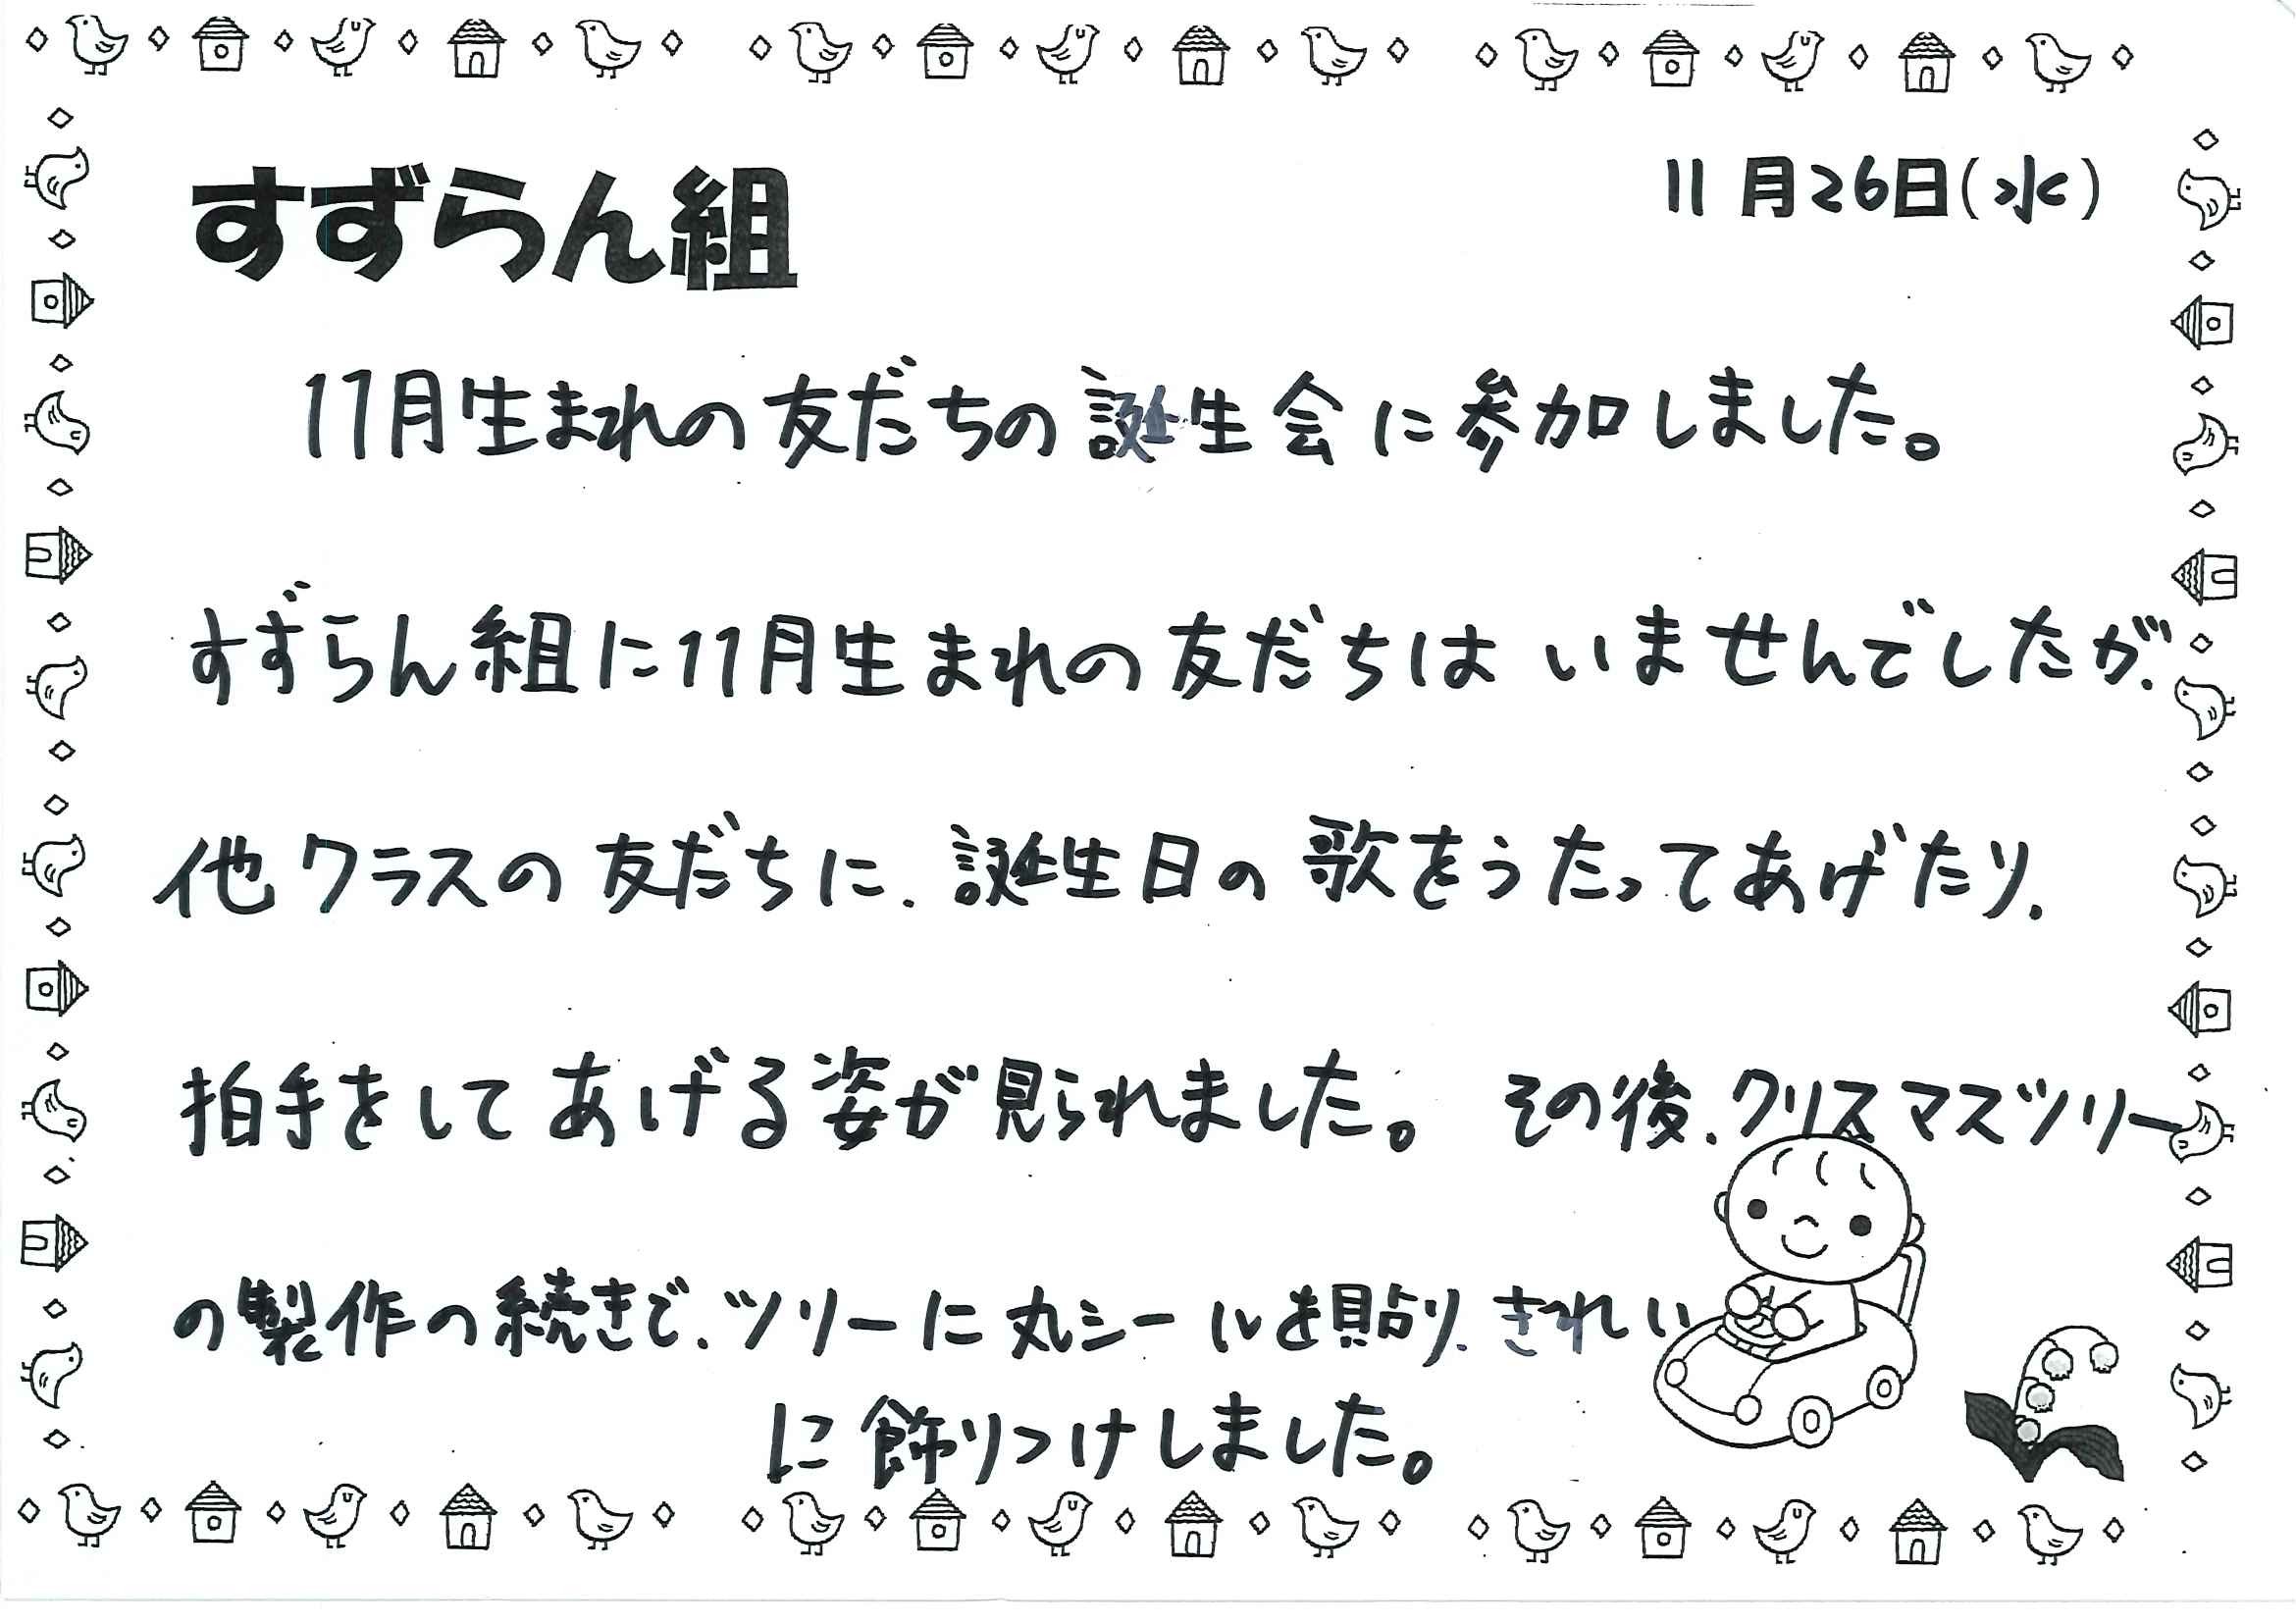 すずらん組
11月26日(水)
11月生まれの友だちの誕生会に参加しました。
すずらん組に11月生まれの友だちはいませんでしたが、
他クラスの友だちに、誕生日の歌をうたってあげたり、
拍手をしてあげる姿が見られました。その後、クリスマスツリー
の製作の続きで、ツリーに丸シールを貼り、きれい
に飾りつけしました。